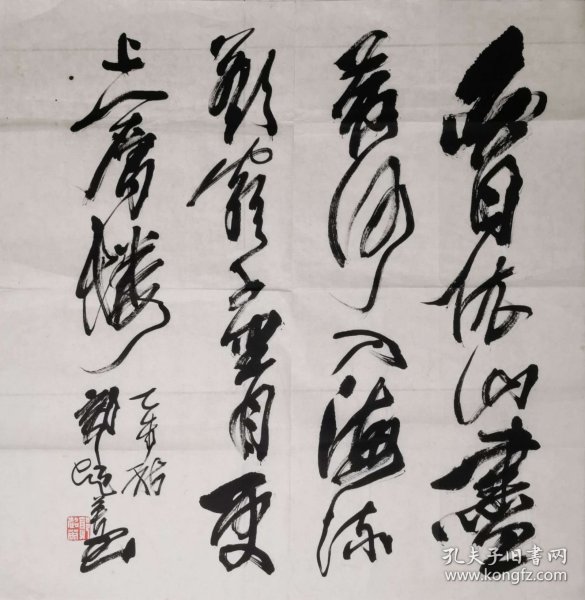 白日依山盡
黃河入海流
欲窮千里目更
上一層樓
乙未
孔夫子旧书网
www.kongfz.com